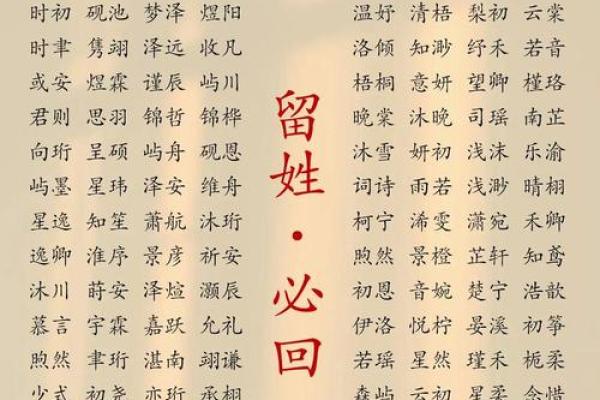 时初 砚池 梦泽 煜阳
时聿 隽翊 泽远 收凡
或安 煜霖 谨辰 屿川
君则 思羽 锦哲 锦桦
向珩 呈硕 屿舟 砚恩
屿墨 星玮 泽安 维舟
星逸 知笙 萧航 沐珩
逸卿 淮序 景彦 祈安
沐川 莳安 泽煊 灏辰
慕言 宇霖 嘉跃 允礼
煦然 聿珩 湛南 翊谦
少弌 初尧 亦珩 承栩
留姓·必回
温妤 清梧 梨初 云棠
洛倾 知渺 纾禾 若音
梧桐 意妍 望卿 槿珞
晚棠 沐晚 司瑶 南芷
沐雪 妍初 浅沫 乐渝
词诗 雨若 浅渺 晴栩
柯宁 浠雯 潇宛 禾卿
煦然 景橙 芷轩 知鸢
初恩 音婉 楚宁 浩歆
伊洛 悦柠 晏溪 初筝
若瑶 星然 瑾禾 栀柔
森屿 云初 星柔 念惜